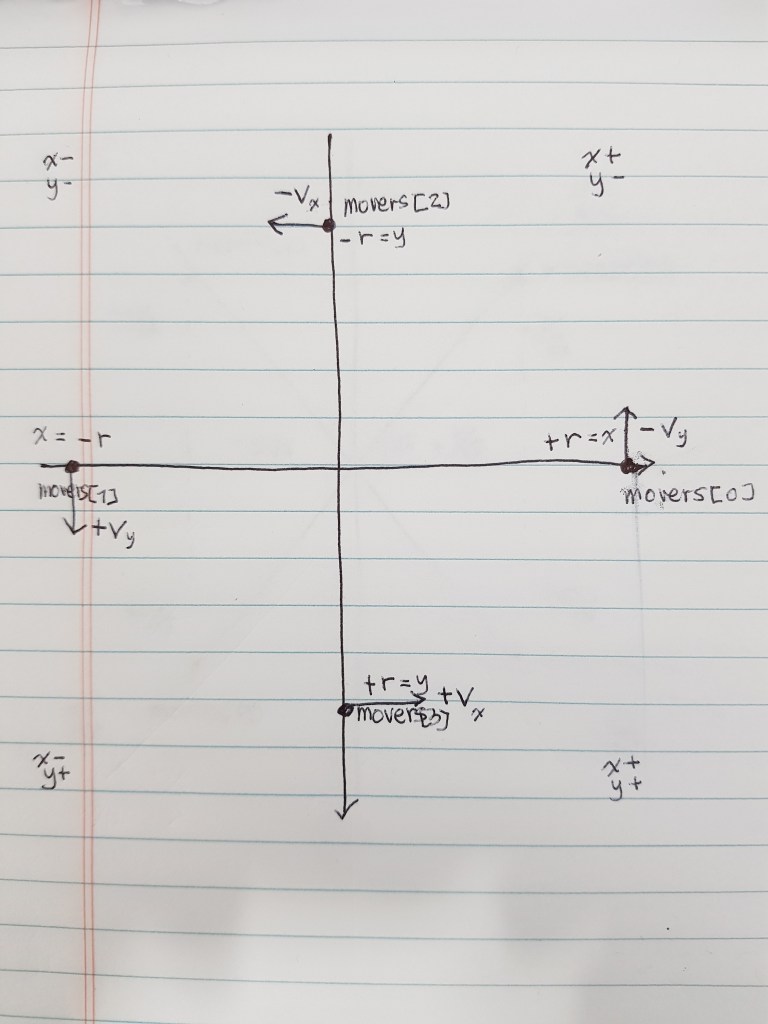 x-
y-
x+
y-
-Vx
movers[2]
-r=y
x = -r
+r=x
-Vy
movers[1]
movers[0]
+Vy
+r=y
+Vx
movers[3]
x-
y+
x+
y+